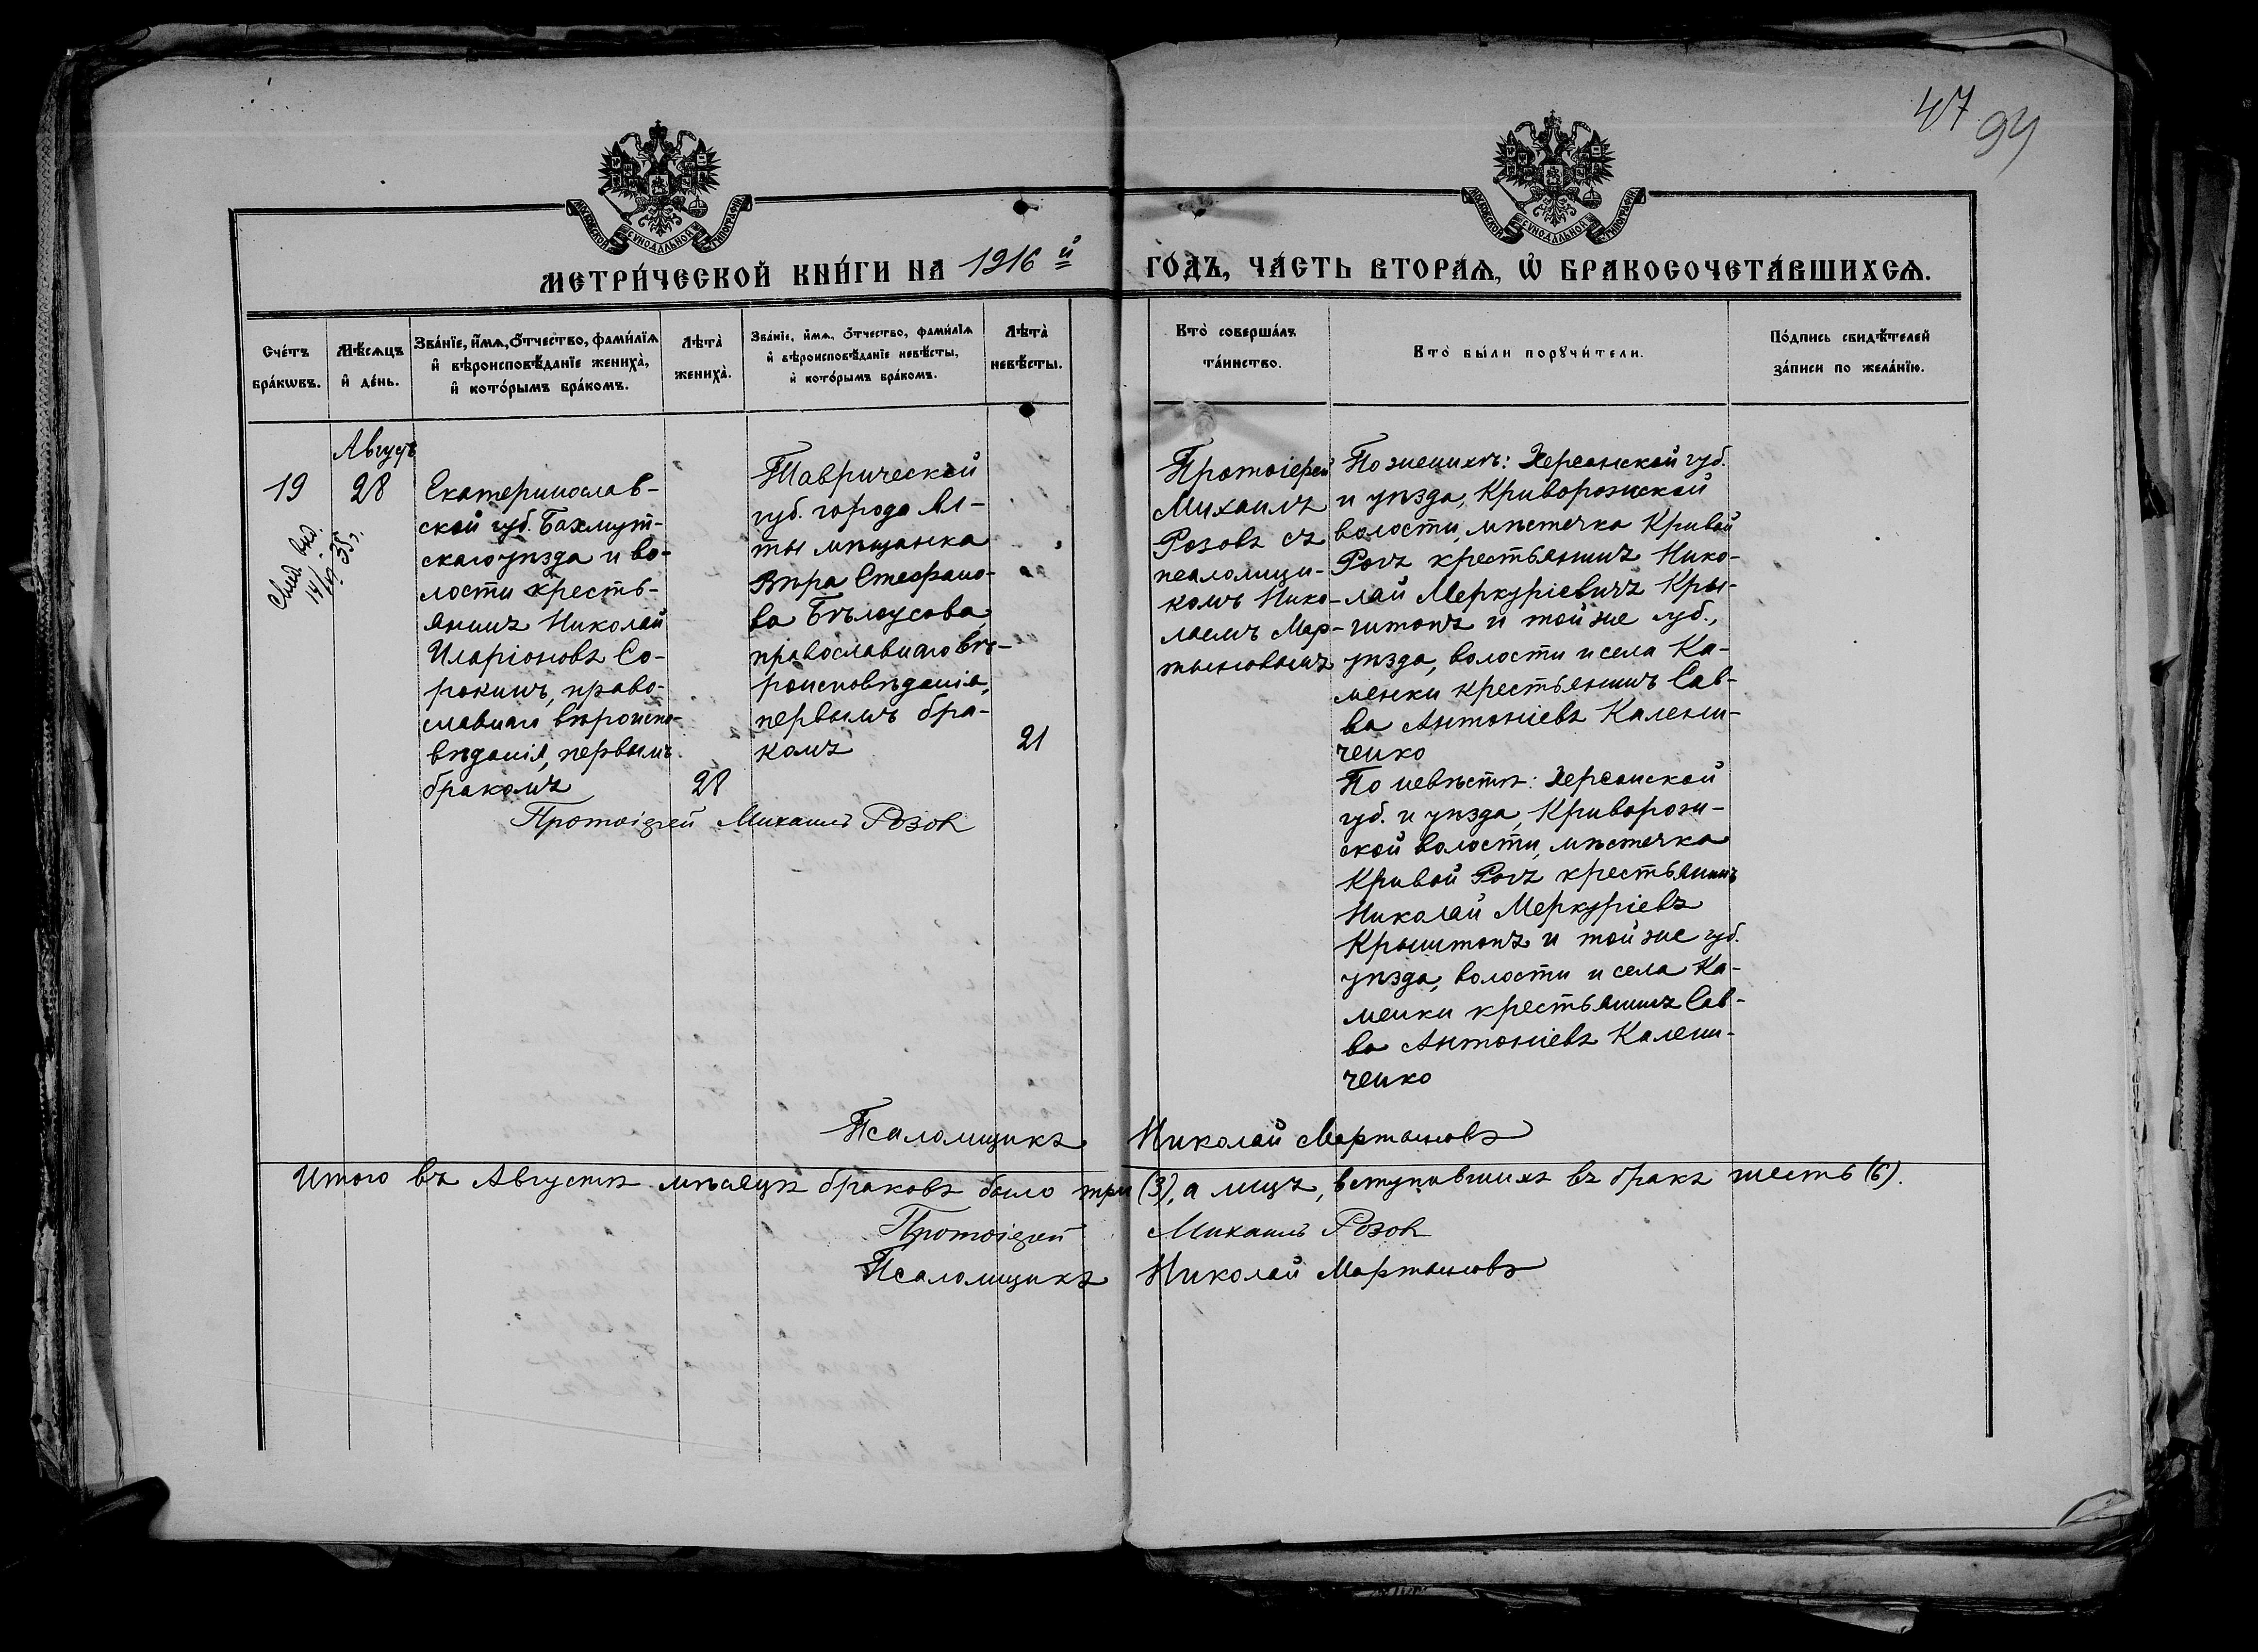 47 94
МОСКОВСКОЙ СѴНОДАЛЬНОЙ ТИПОГРАФІИ
МОСКОВСКОЙ СѴНОДАЛЬНОЙ ТИПОГРАФІИ
МЕТРИ́ЧЕСКОЙ КНИ́ГИ НА 1916 й
ГО́ДЪ, ЧА́СТЬ ВТОРА́Ѧ, Ѡ҆ БРАКОСОЧЕТА́ВШИХСѦ.
Сче́тъ
бра́кѡвъ.
Мѣ́сѧцъ
и҆ де́нь.
Зва́нїе, и҆́мѧ, ѻ҆́тчество, фами́лїѧ
и҆ вѣроисповѣ́данїе жениха̀,
и҆ кото́рымъ бра́комъ.
Лѣ́та
жениха̀.
Зва́нїе, и҆́мѧ, ѻ҆́тчество, фами́лїѧ
и҆ вѣроисповѣ́данїе невѣ́сты,
и҆ кото́рымъ бра́комъ.
Лѣ́та
невѣ́сты.
Кто̀ соверша́лъ
та́инство.
Кто̀ бы́ли порꙋчи́тели.
По́дпись свидѣ́телей
за́писи по жела́нїю.
19
Свид. выд.
14/IV 35 г.
Августъ
28
Екатеринослав-
ской губ. Бахмут-
скаго уѣзда и во-
лости кресть-
янинъ Николай
Иларіоновъ Со-
рокинъ, право-
славнаго вѣроиспо-
вѣданія, первымъ
бракомъ
28
Таврической
губ. города Ял-
ты мѣщанка
Вѣра Стефано-
ва Бѣлоусова
православнаго вѣ-
роисповѣданія,
первымъ бра-
комъ
21
Протоіерей Михаилъ Розов
Протоіерей
Михаилъ
Розовъ съ
псаломщи-
комъ Нико-
лаемъ Мар-
тыновымъ
По женихѣ: Херсонской губ.
и уѣзда, Криворожской
волости, мѣстечка Кривой
Рогъ крестьянинъ Нико-
лай Меркуріевичъ Кры-
штопъ и той же губ.,
уѣзда, волости и села Ка-
менки крестьянинъ Сав-
ва Антоніевъ Калени-
ченко
По невѣстѣ: Херсонской
губ. и уѣзда, Криворож-
ской волости, мѣстечка
Кривой Рогъ крестьянинъ
Николай Меркуріевъ
Крыштопъ и той же губ.
уѣзда, волости и села Ка-
менки крестьянинъ Сав-
ва Антоніевъ Калени-
ченко
Псаломщикъ Николай Мартыновъ
Итого въ Августѣ мѣсяцѣ браковъ было три (3), а лицъ, вступившихъ въ бракъ шесть (6).
Протоіерей Михаилъ Розов
Псаломщикъ Николай Мартыновъ